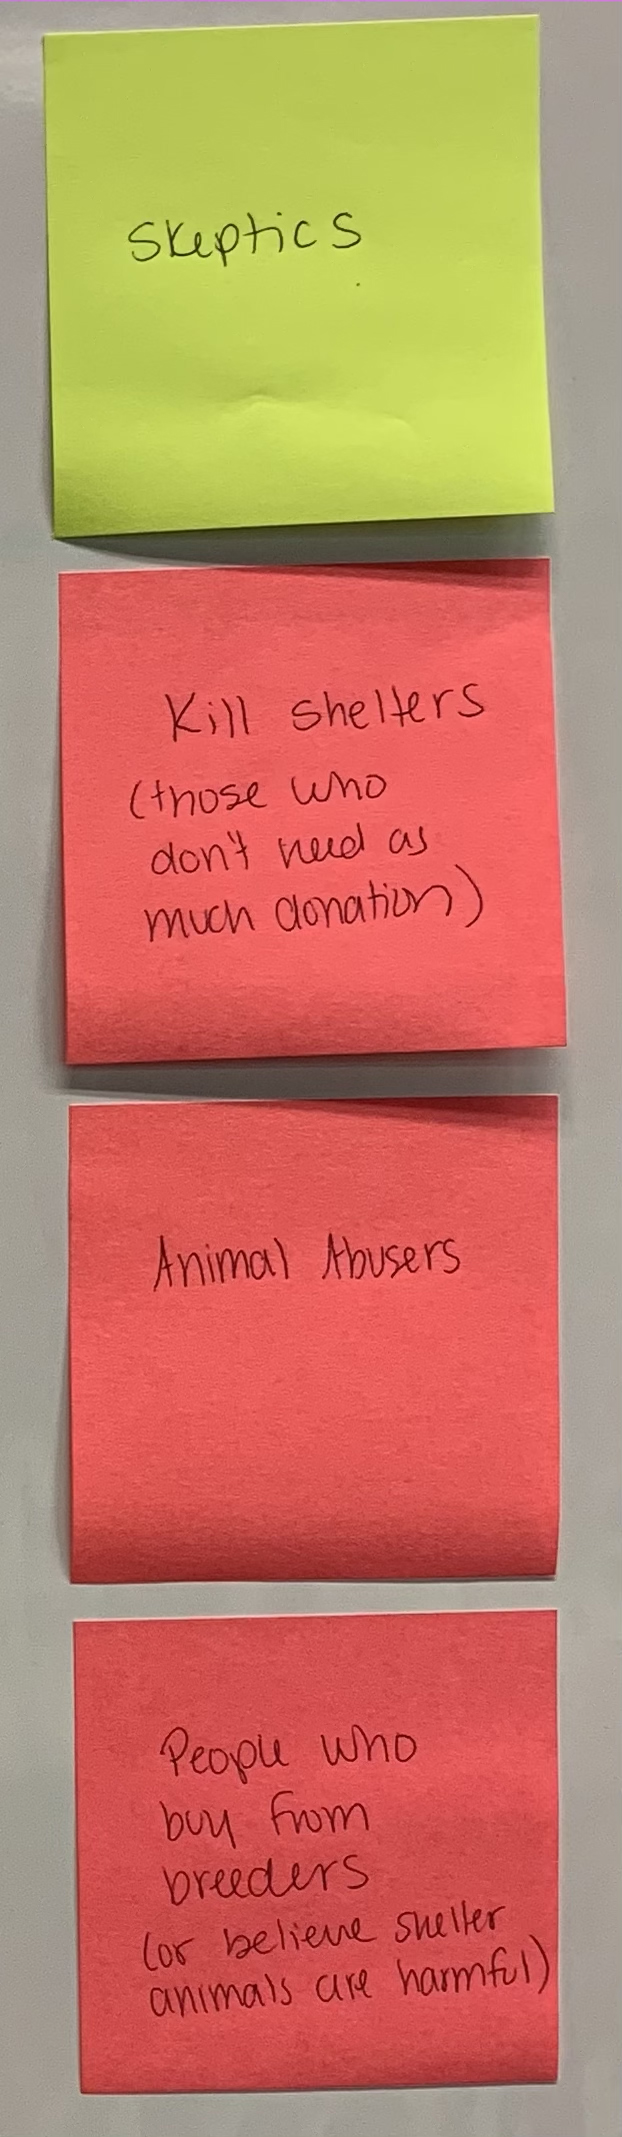 Skeptics
Kill shelters
(those who
don't need as
much donation)
Animal Abusers
People who
buy from
breeders
(or believe shelter
animals are harmful)